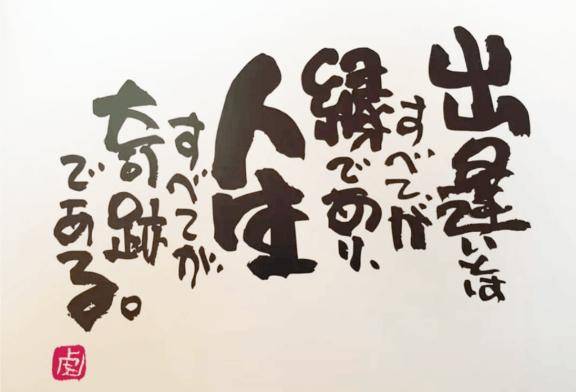 出逢いとは
すべてが
縁であり、
人生
すべてが
奇跡
である。